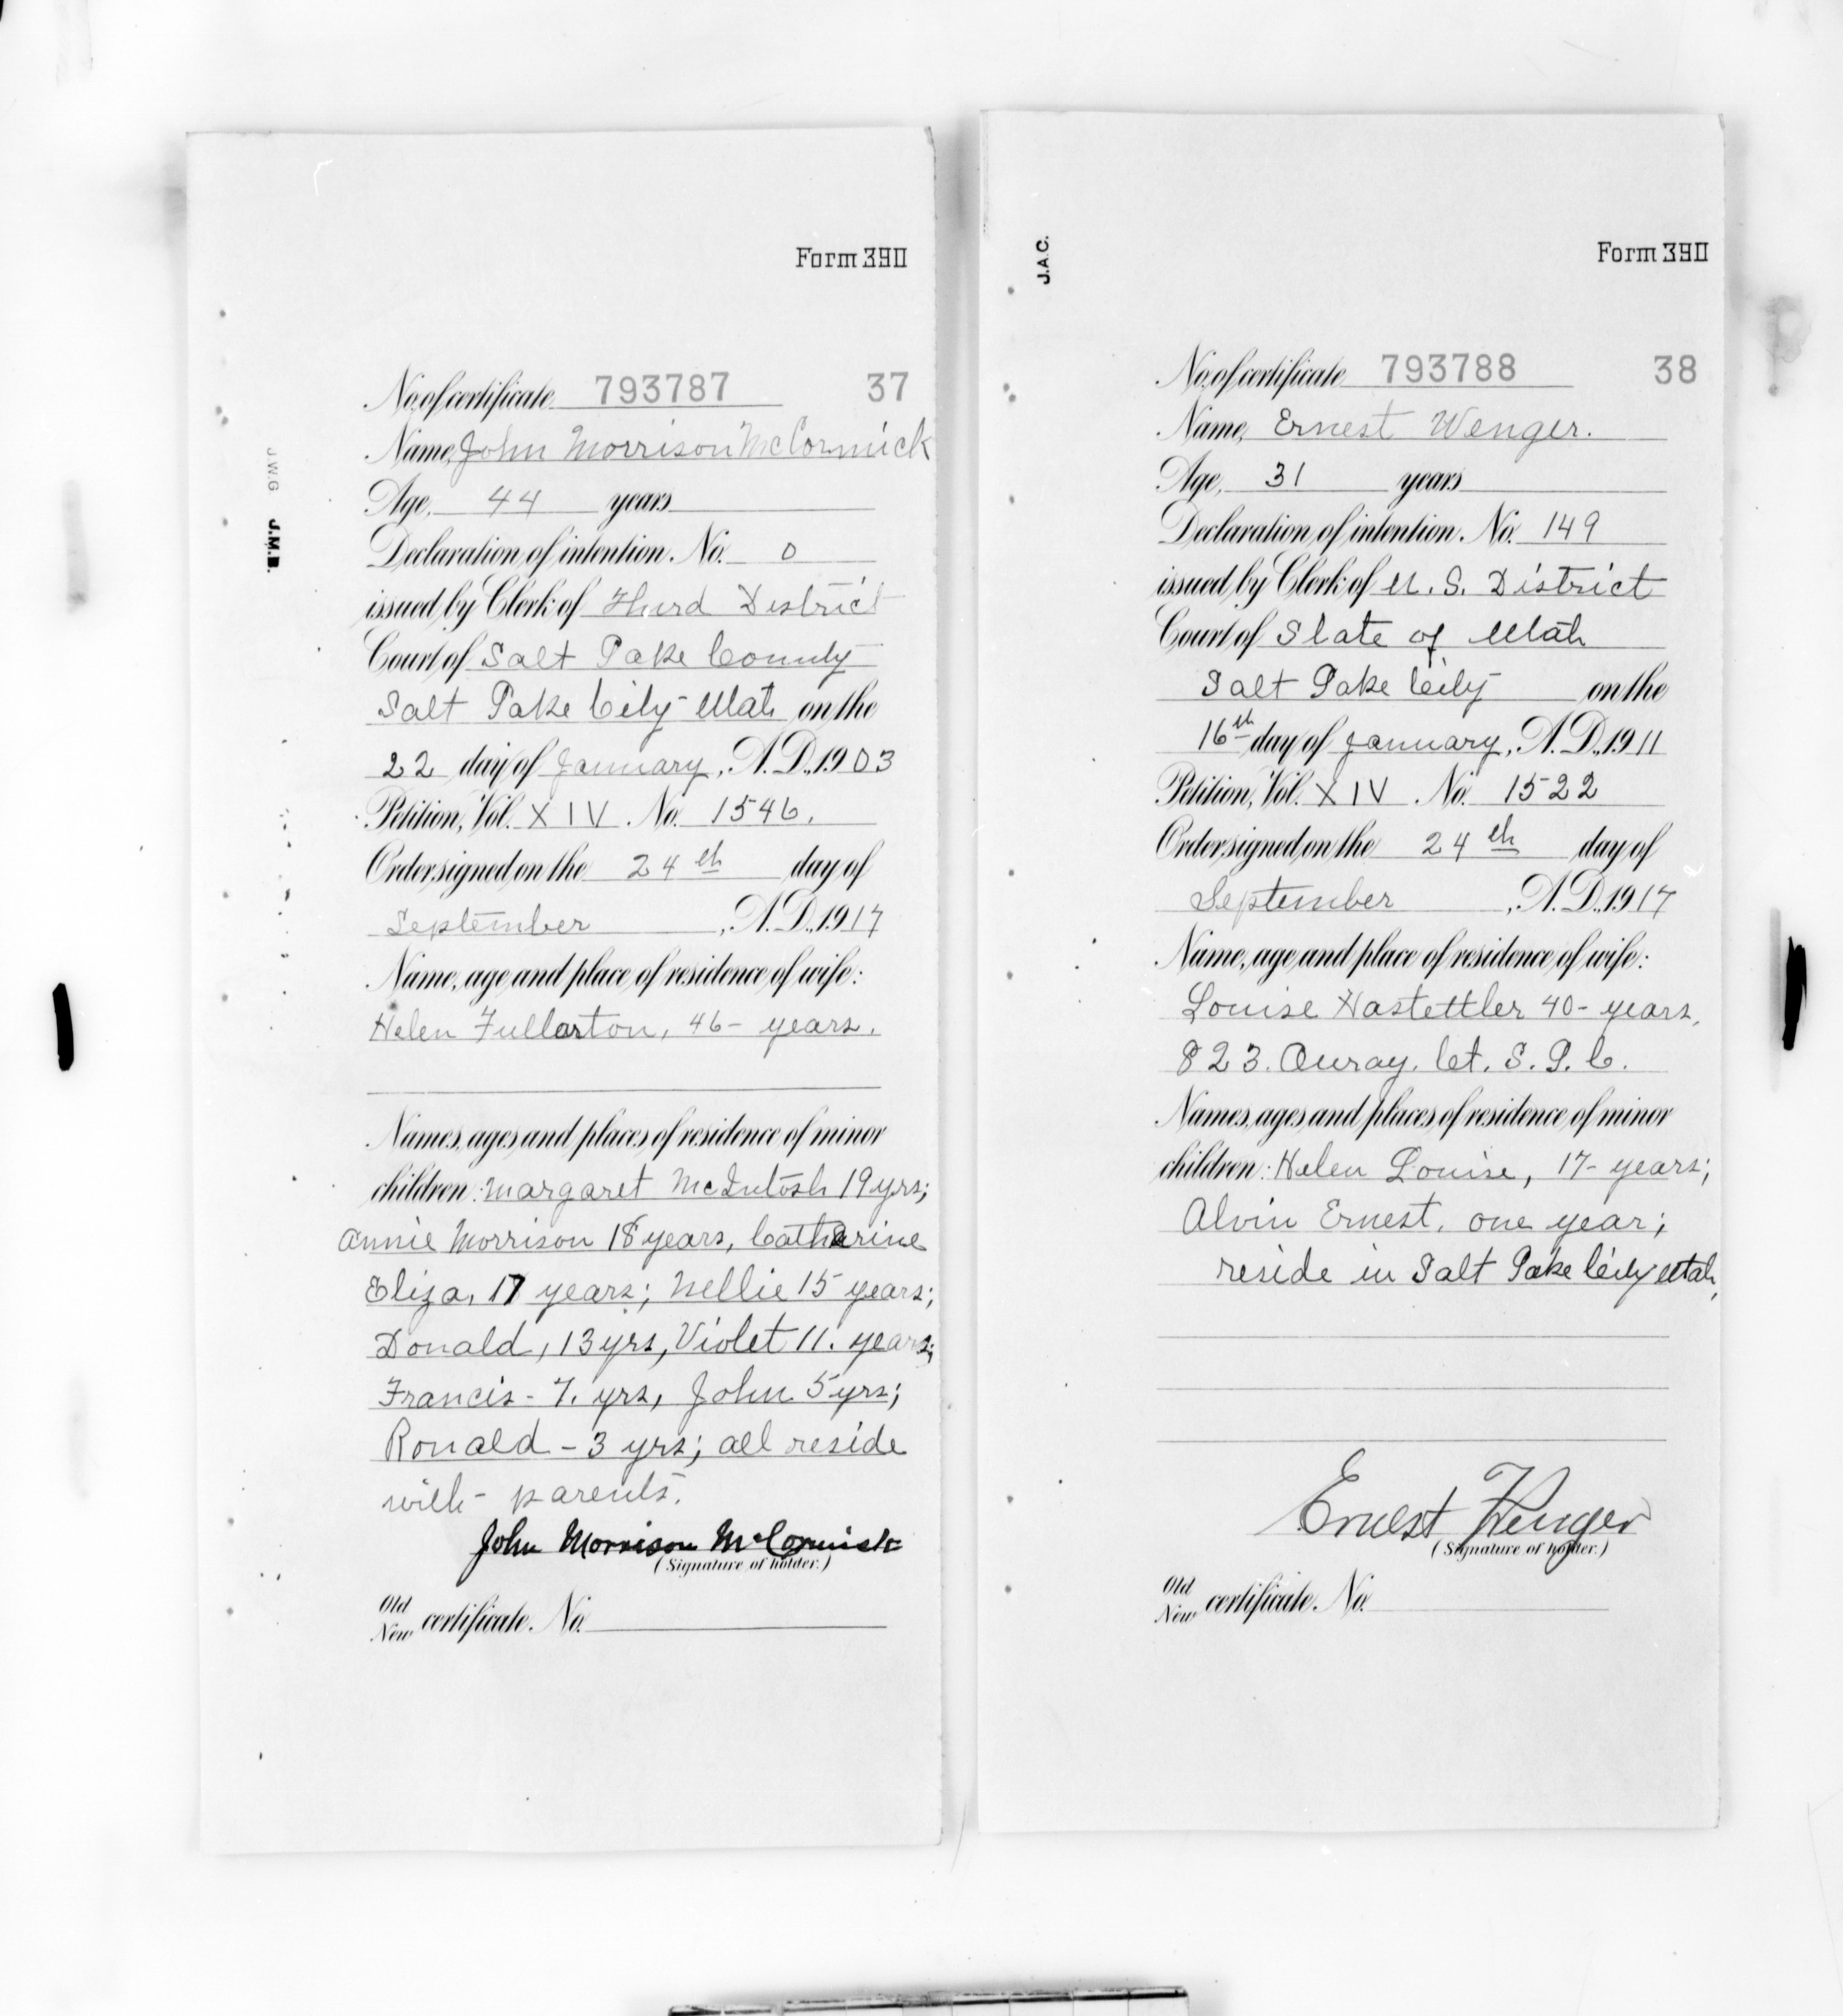 Form 390
No. of certificate 793787 37
Name, John Morrison McCormick
Age, 44 years
Declaration of intention. No. 0
issued by Clerk of Third District
Court of Salt Lake County
Salt Lake City Utah on the
22 day of January, A.D. 1903
Petition, Vol. XIV. No. 1546.
Order signed on the 24th day of
September, A.D. 1917
Name, age and place of residence of wife:
Helen Fullarton, 46- years.
Names, ages and places of residence of minor
children: Margaret McIntosh 19 yrs;
Annie Morrison 18 years, Catharine
Eliza, 17 years; Nellie 15 years;
Donald, 13 yrs, Violet 11. years;
Francis - 7. yrs, John 5 yrs;
Ronald - 3 yrs; all reside
with - parents.
John Morrison McCormick
(Signature of holder.)
Old
New certificate. No.
J.W.G J.M.B.
J.A.C.
Form 390
No. of certificate 793788 38
Name, Ernest Wenger.
Age, 31 years
Declaration of intention. No. 149
issued by Clerk of U.S. District
Court of State of Utah
Salt Lake City on the
16th day of January, A.D. 1911
Petition, Vol. XIV. No. 1522
Order signed on the 24th day of
September, A.D. 1917
Name, age and place of residence of wife:
Louise Hastettler 40- years,
823. Ouray. Ct. S. L. C.
Names, ages and places of residence of minor
children: Helen Louise, 17- years;
Alvin Ernest, one year;
reside in Salt Lake City Utah,
Ernest Wenger
(Signature of holder.)
Old
New certificate. No.